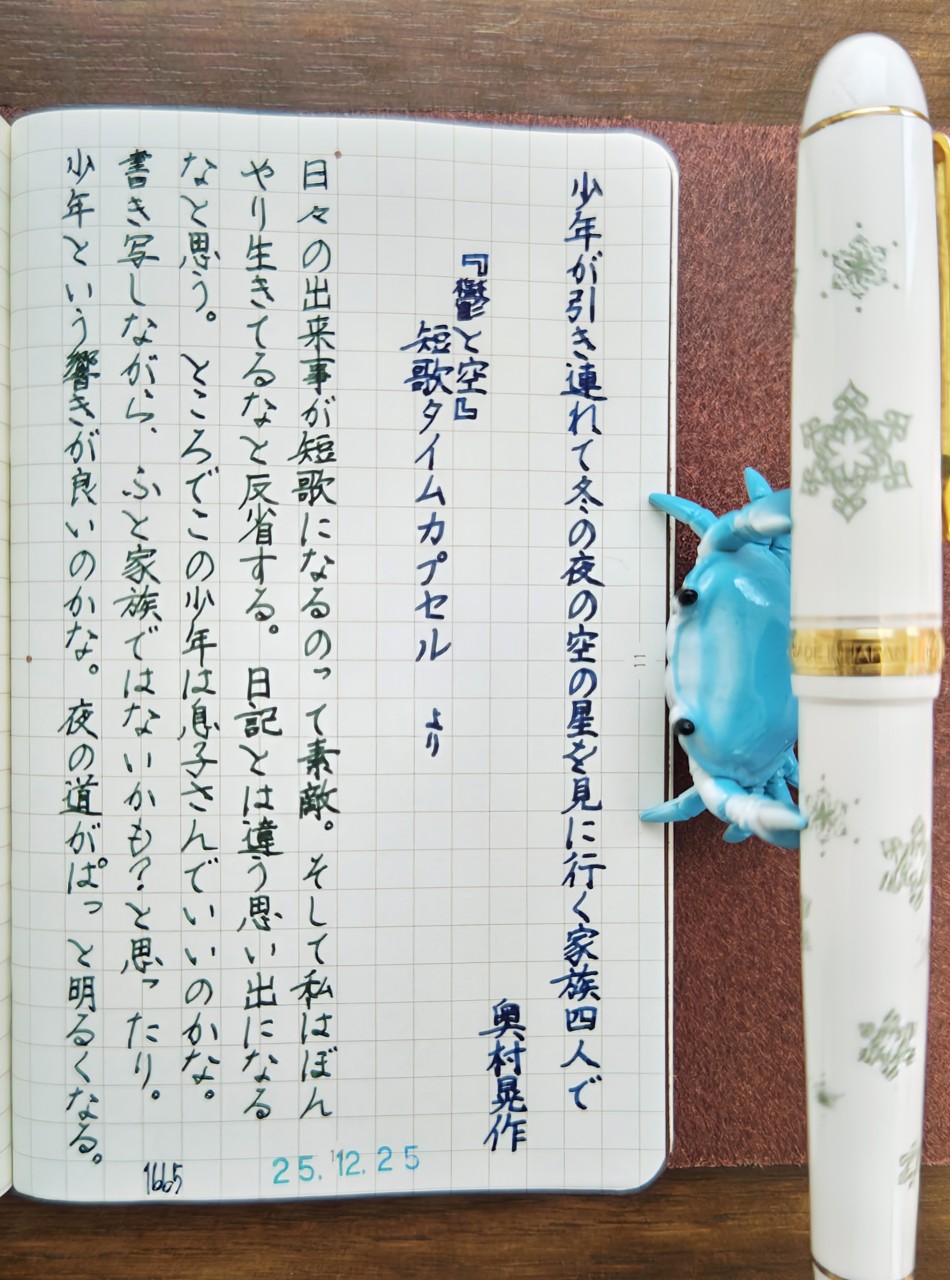 少年が引き連れて冬の夜の空の星を見に行く家族四人で
奥村晃作
『鬱と空』
短歌タイムカプセル より
日々の出来事が短歌になるのって素敵。そして私はぼん
やり生きてるなと反省する。日記とは違う思い出になる
なと思う。ところでこの少年は息子さんでいいのかな。
書き写しながら、ふと家族ではないかも?と思ったり。
少年という響きが良いのかな。夜の道がぱっと明るくなる。
25.12.25
1665
11